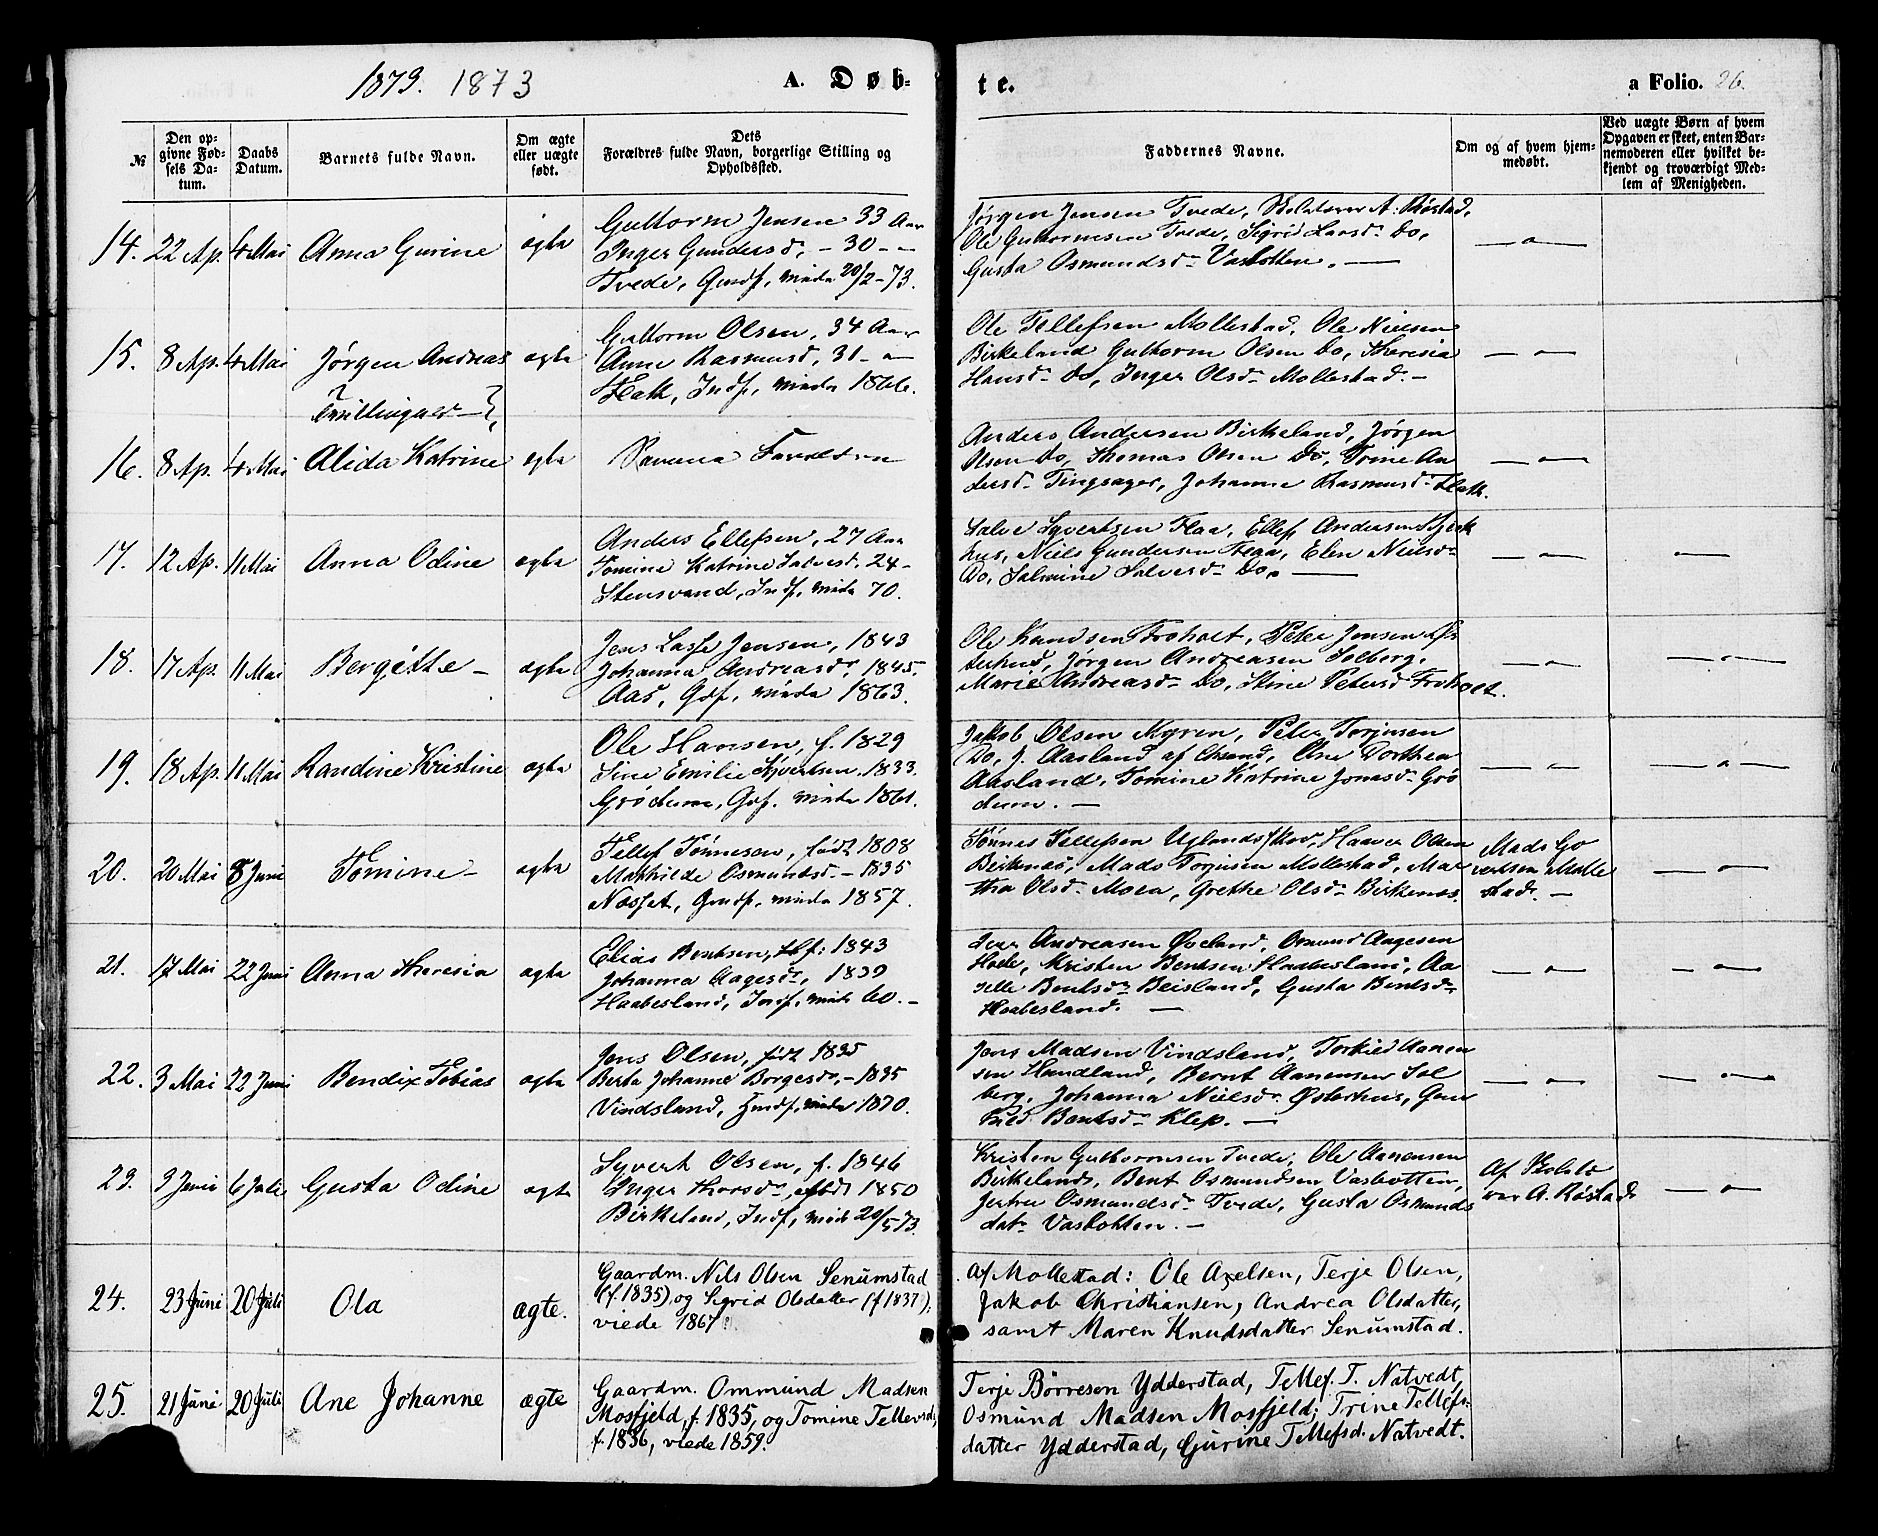 1873. 1873
A. Døb-
te.
a Folio. 26.
№
Den op-
givne Fød-
sels Da-
tum.
Daabs
Datum.
Barnets fulde Navn.
Om ægte
eller uægte
født.
Dets
Forældres fulde Navn, borgerlige Stilling og
Opholdssted.
Faddernes Navne.
Om og af hvem hjem-
medøbt.
Ved uægte Børn af hvem
Opgaven er skeet, enten Bar-
nemoderen eller hvilket be-
kjendt og troværdigt Med-
lem af Menigheden.
14. 22 Ap. 4 Mai Anna Gurine ægte
Guttorm Jensen 33 Aar
Inger Gundersd. - 30 - "
Tvede, Gmdf, viede 20/2-73.
Jørgen Jensen Tvede, A. Røstad,
Ole Guttormsen Tvede, Sigrid Larsd. Do,
Gusta Osmundsd. Vasbotten. —
— " —
15. 8 Ap. 4 Mai Jørgen Andreas ægte
Tvillinger
Guttorm Olsen, 34 Aar
Anne Rasmusd, 31 - "
Flak, Indf, viede 1866.
Ole Tellefsen Mollestad, Ole Nielsen
Birkeland Guttorm Olsen Do, Theresia
Hansd. Do, Inger Olsd. Mollestad. —
— " —
16. 8 Ap. 4 Mai Alida Katrine ægte
Samme Forældre
Anders Andersen Birkeland, Jørgen
Olsen Do, Thomas Olsen Do, Trine An
dersd. Tingsager, Johanne Rasmusd. Flak.
— " —
17. 12 Ap. 11 Mai Anna Odine ægte
Anders Ellefsen, 27 Aar
Tomine Katrine Salvesd. 24 -
Stensvand, Indf, viede 70.
Salve Syvertsen Flaa, Ellef Andersen
hus, Niels Gundersen Flaa, Elen Nielsd.
Do, Salmine Salvesd. Do. —
— " —
— " —
18. 17 Ap. 11 Mai Bergitte - ægte
Jens Lasse Jensen, 1843
Johanna Andreasd. 1845.
Aas, Gdf, viede 1863.
Ole Knudsen Froholt, Peter Jensen Øs
terhus, Jørgen Andreasen Solberg.
Marie Andreasd. Do, Stine Petersd Froholt.
— " —
— " —
19. 18 Ap. 11 Mai Randine Kristine ægte
Ole Hansen, f. 1829
Sine Emilie Syvertsen. 1833.
Grødum, Gdf. viede 1861.
Jakob Olsen Myren, Peter Torjusen
Do, J. Aasland af Chsand, Ane Dorthea
Aasland, Tomine Katrine Jonasd. Grø
dum. —
— " —
— " —
20. 20 Mai 8 Juni Tomine - ægte
Tellef Tønnesen, født 1808
Mathilde Osmundsd. - 1835
Næsset, Gmdf, viede 1857.
Tønnes Tellefsen Uglandsskov, Haaver Olsen
Birkenes, Mads Torjusen Mollestad, Mar
tha Olsd. Moen, Grethe Olsd. Birkenes.
Mads Go
vertsen Molle
stad. —
— " —
21. 17 Mai 22 Juni Anna Theresia ægte
Elias Bentsen, f: 1843
Johanna Aagesd., 1839
Haabesland, Indf, viede 60. -
Iver Andreasen Øveland, Osmund Aagesen
Hodle, Kristen Bentsen Haabesland, Aa
selle Bentsd. Beisland, Gusta Bentsd.
Haabesland. —
— " —
— " —
22. 3 Mai 22 Juni Bendix Tobias ægte
Jens Olsen, født 1835
Berta Johanne Borgesd. - 1835
Vindsland, Gmdf, viede 1870.
Jens Madsen Vindsland, Torkild Aanen
sen Handland, Bernt Aanensen Sol
berg, Johanna Nielsd. Østerhus, Gun
hild Bentsd. Klep. —
— " —
— " —
23. 3 Juni 6 Juli Gusta Odine ægte
Syvert Olsen, f. 1846
Inger Thorsd. født 1850
Birkeland, Indf, viede 20/5 73.
Kristen Guttormsen Tvede, Ole Aanensen
Birkeland, Bent Osmundsen Vasbotten,
Jertru Osmundsd. Tvede, Gusta Osmunds
dat. Vasbotten. —
Af
A. Røstad
— " —
24. 23 Juni 20 Juli Ola ægte.
Gaardm. Nils Olsen Senumstad
(f. 1835), og Sigrid Olsdatter (f 1837),
viede 1867.
Af Mollestad: Ole Axelsen, Terje Olsen,
Jakob Christiansen, Andrea Olsdatter,
samt Maren Knudsdatter Senumstad.
25. 21 Juni 20 Juli Ane Johanne ægte
Gaardm. Ommund Madsen
Mosfjeld, f. 1835, og Tomine Tellevsd,
f. 1836, viede 1859.
Terje Børresen Ydderstad, Tellef. T. Natvedt,
Osmund Madsen Mosfjeld; Trine Tellefs-
datter Ydderstad, Gurine Tellefsd. Natvedt.